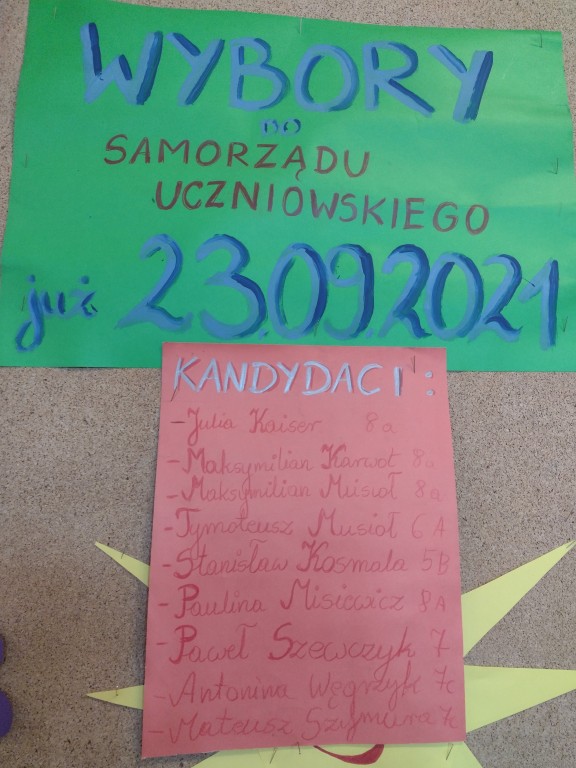 WYBORY
DO
SAMORZĄDU
UCZNIOWSKIEGO
już 23.09.2021
KANDYDACI:
- Julia Kaiser 8a
- Maksymilian Karwot 8a
- Maksymilian Musioł 8a
- Tymoteusz Musioł 6A
- Stanisław Kosmala 5B
- Paulina Misiewicz 8A
- Paweł Szewczyk 7
- Antonina Węgrzyk 7c
- Mateusz Szymura 7c